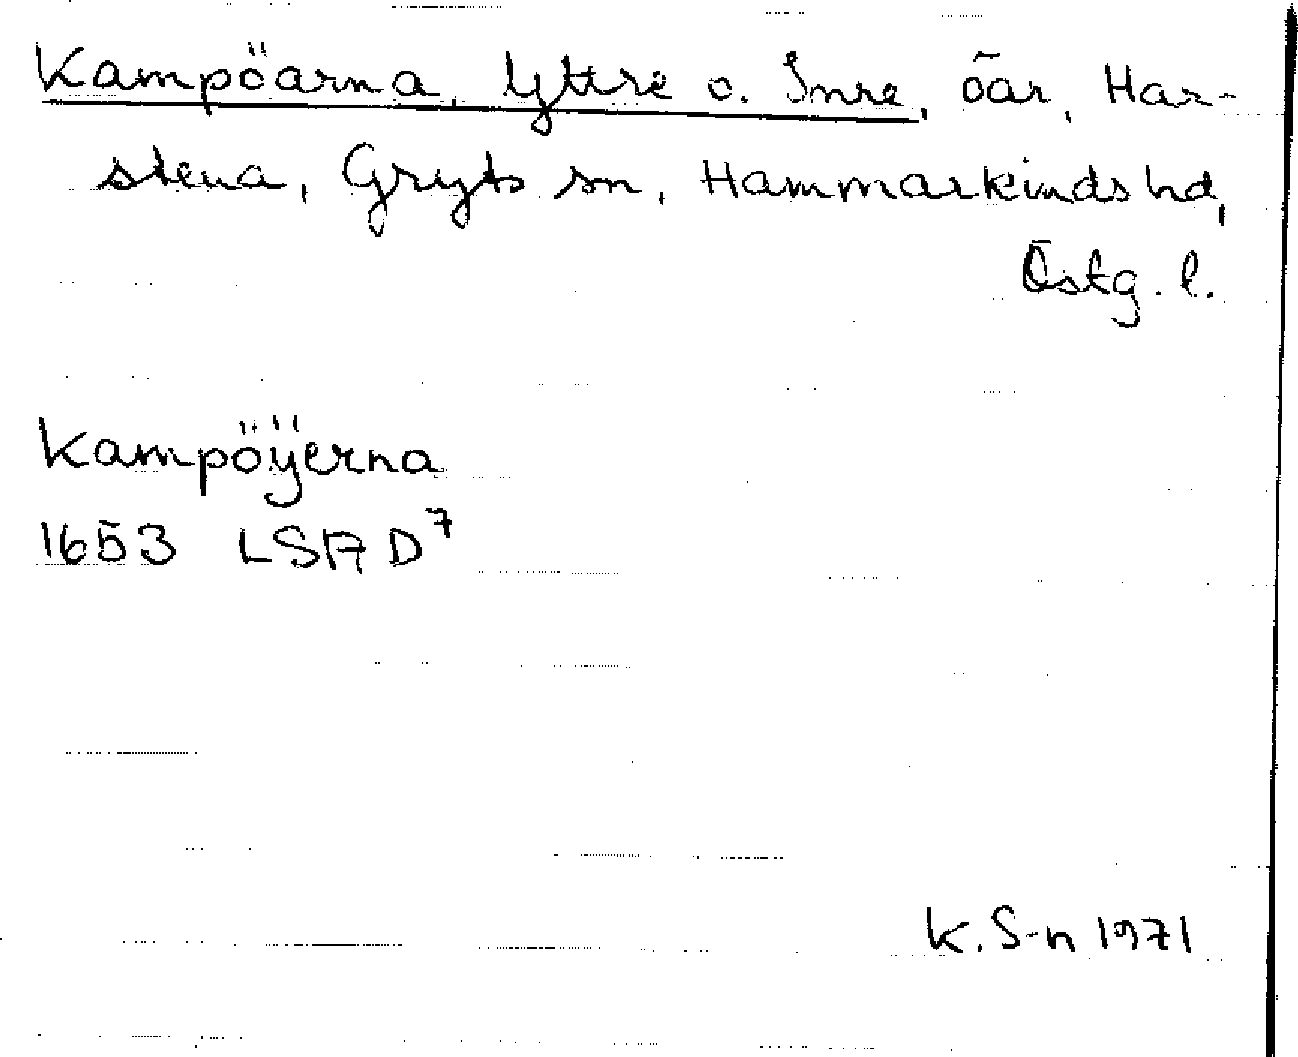 Kampöarna, Yttre o. Inre, öar, Har-
stena, Gryts sn, Hammarkinds hd,
Östg. l.
Kampöÿerna
1653 LSA D⁷
K. S-n 1971